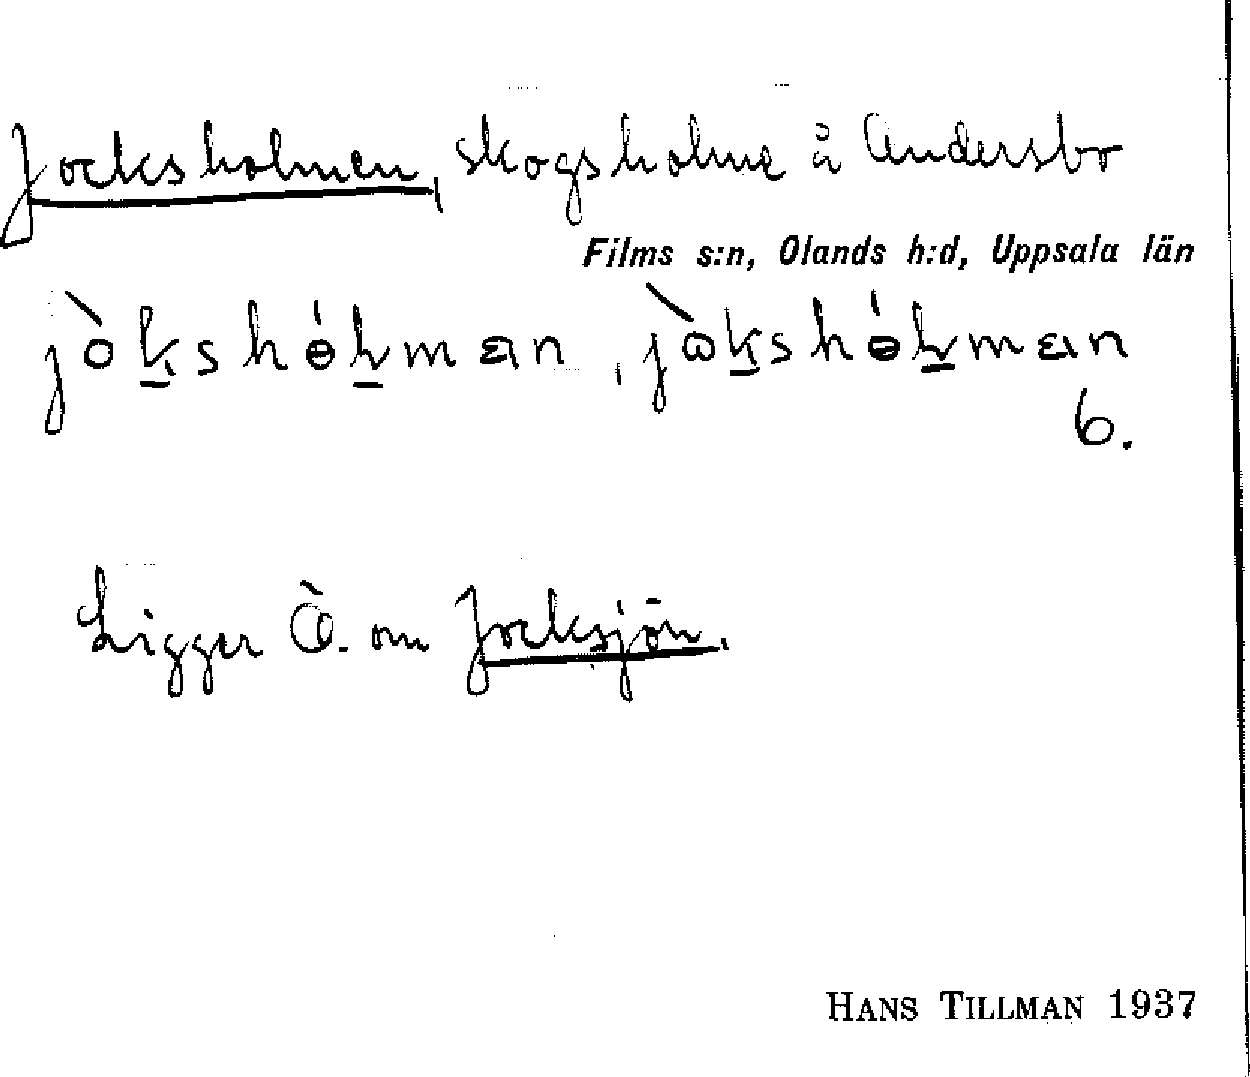 Jocksholmen, skogsholme å Andersbo
Films s:n, Olands h:d, Uppsala län
6.
Ligger Ö. om Jocksjön.
HANS TILLMAN 1937